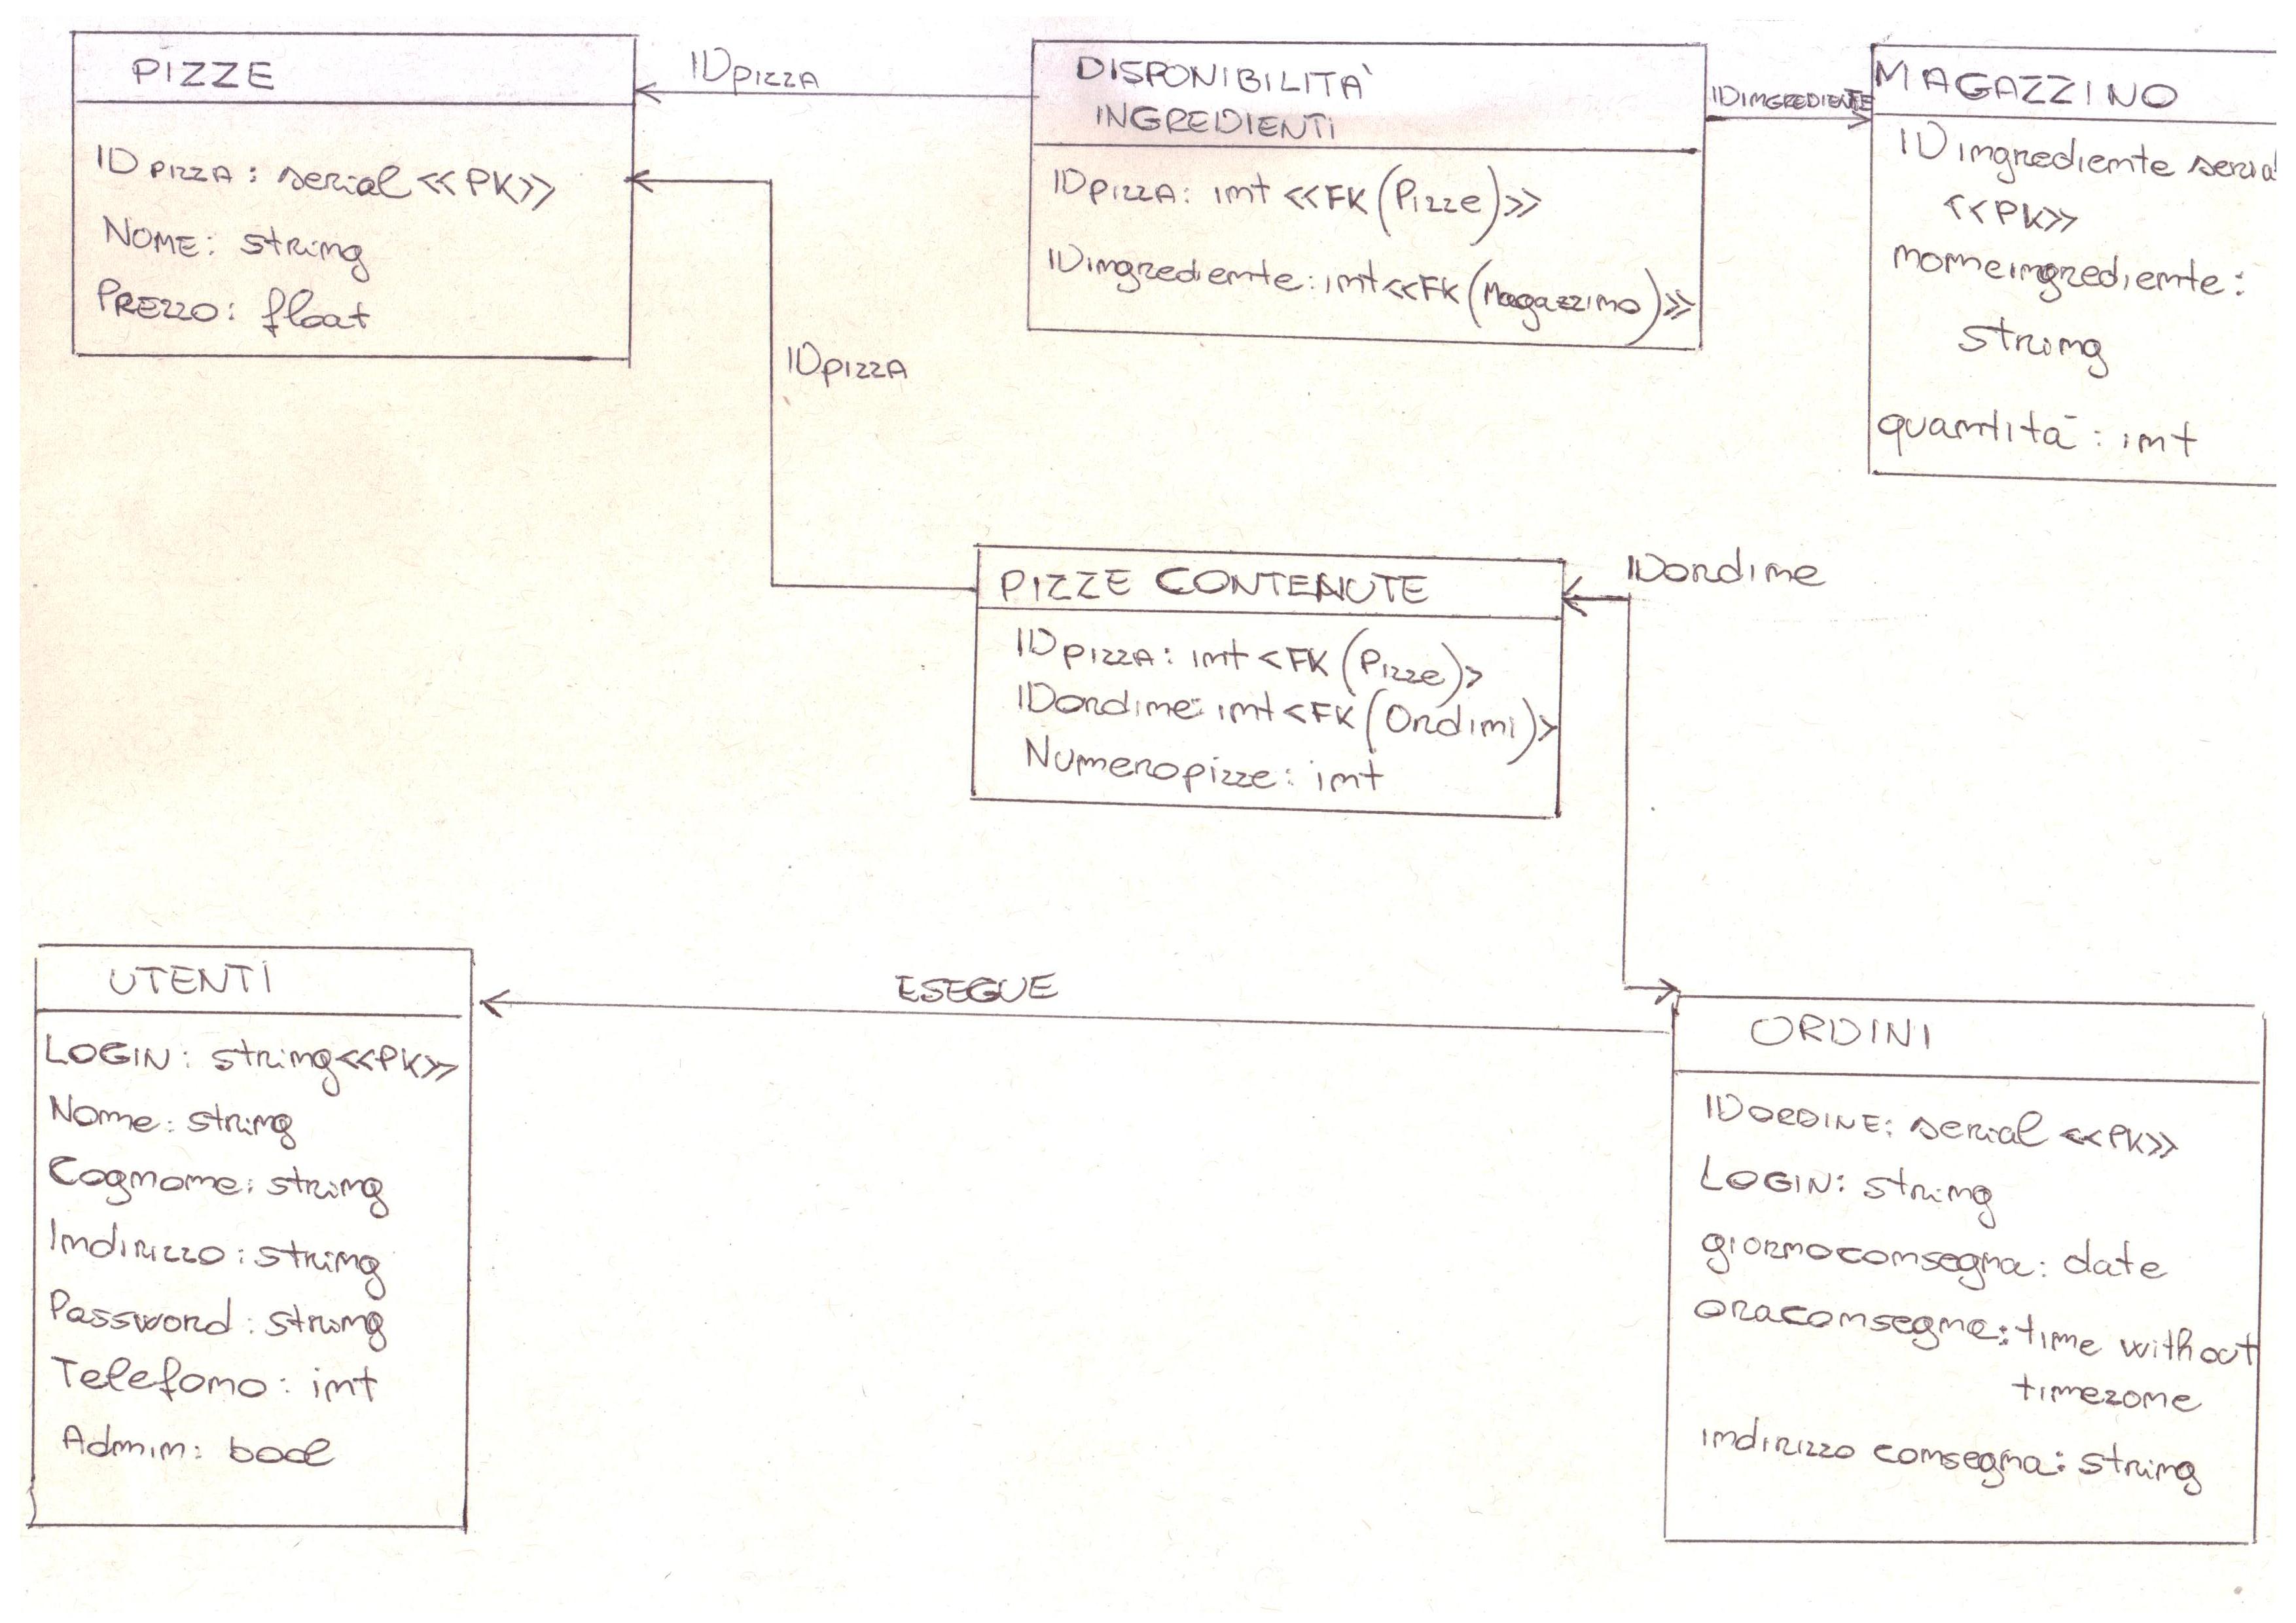 PIZZE
IDPIZZA: serial <<PK>>
NOME: string
PREZZO: float
IDPIZZA
DISPONIBILITÀ
INGREDIENTI
IDPIZZA: int <<FK(Pizze)>>
IDingrediente: int <<FK(Magazzino)>>
IDINGREDIENTE
MAGAZZINO
IDingrediente seria
<<PK>>
nomeingrediente:
string
quantità: int
IDPIZZA
PIZZE CONTENUTE
IDPIZZA: int <FK(Pizze)>
IDordine: int <FK(Ordini)>
Numeropizze: int
IDordine
UTENTI
LOGIN: string <<PK>>
Nome: string
Cognome: string
Indirizzo: string
Password: string
Telefono: int
Admin: bool
ESEGUE
ORDINI
IDORDINE: serial <<PK>>
LOGIN: string
giornoconsegna: date
oraconsegna: time without
timezone
indirizzo consegna: string